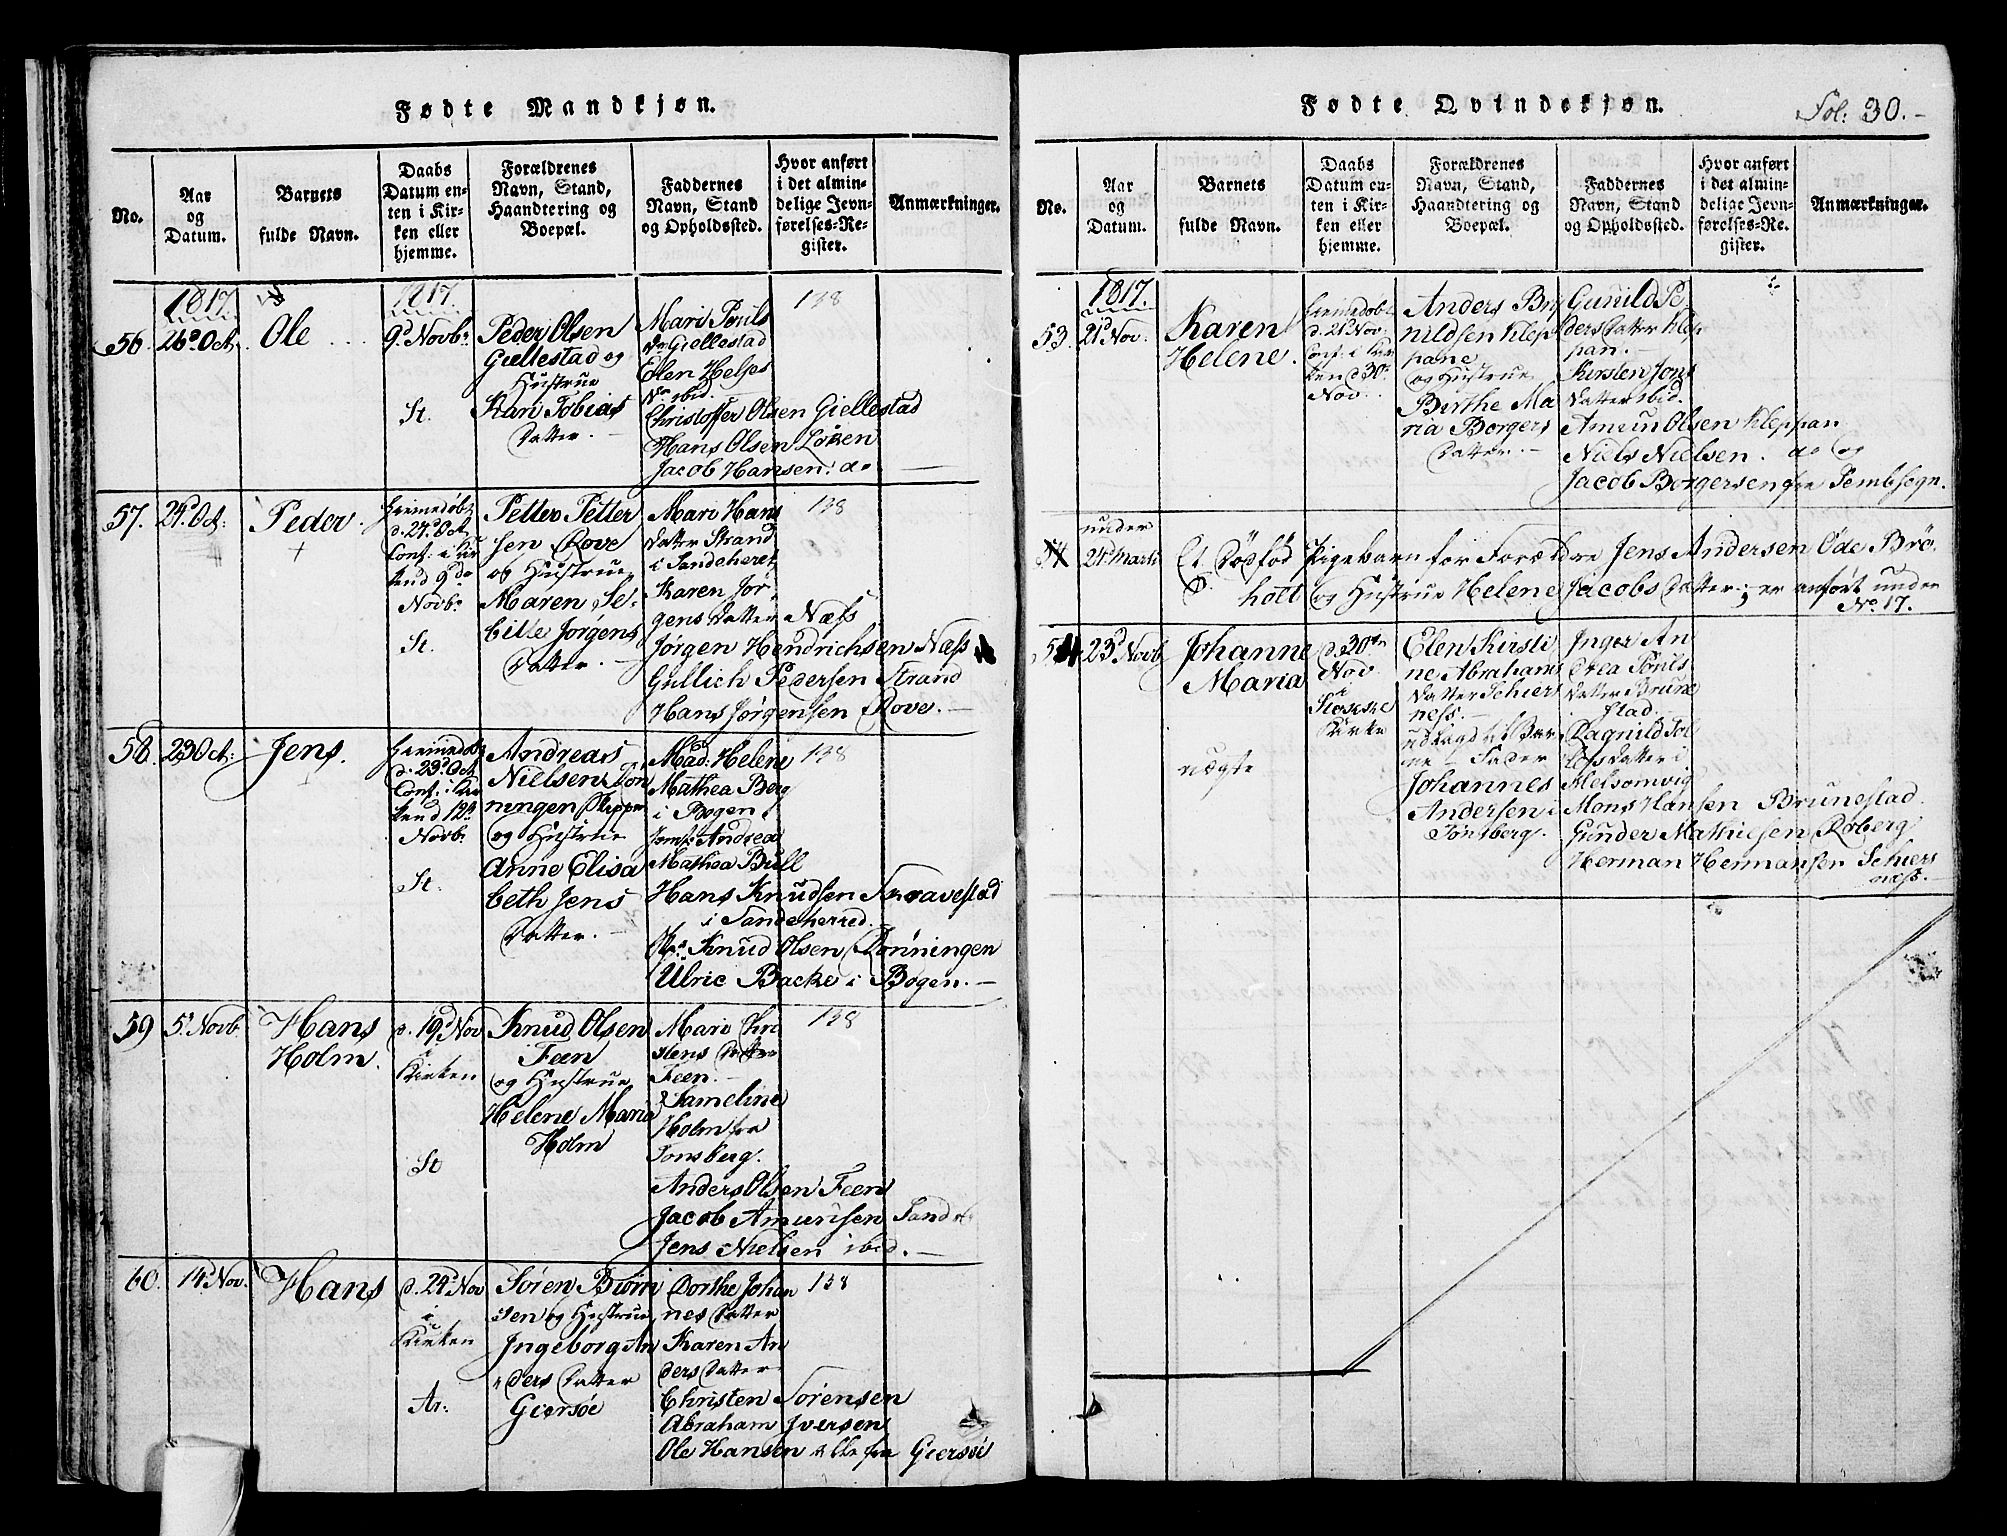 Fødte Mandkjøn.
No.
Aar
og
Datum.
Barnets
fulde Navn.
Daabs
Datum en-
ten i Kir-
ken eller
hjemme.
Forældrenes
Navn, Stand,
Haandtering og
Boepæl.
Faddernes
Navn, Stand
og Opholdssted.
Hvor anført
i det almin-
delige Jevn-
førelses-Re-
gister.
Anmærkninger.
56.
1817.
26d Oct.
Ole
1817.
9d Novbr
St.
Peder Olsen
Giellestad og
Hustrue
Kari Tobias
Datter.
Mari Pouls
Dr Giellestad
Elen Helges
Dr ibid.
Christoffer Olsen Giellestad
Hans Olsen Løken
Jacob Hansen: do
138
57.
24d Oct:
Peder.
+
hiemedøbt
d. 24d Oct
Conf: i Kir
ken d 9de
Novbr
St.
Petter Petter
sen Rove
og Hustrue
Maren Se-
cille Jørgens
Datter.
Mari Hans
Datter Strand
i Sandeherет
Karen Jør-
gens Datter Næss
Jørgen Hendrichsen Næss
Gullich Pedersen Strand
Hans Jørgensen Rove.
138
58.
23 Oct:
Jens.
hiemedøbt
d. 23d Oct
Conf: i Kir
ken d 12te
Novbr
St.
Andreas
Nielsen Røn
ningen Skipper
og Hustrue
Anne Elisa
beth Jens
Datter.
Mad: Helene
Mathea Berg
i Bogen.
Jomf: Andrea
Mathea Bull
Hans Knudsen Snavestad
i Sandeherred.
Knud Olsen Rønningen
Ulric Backe i Bogen.
138
59
5d Novb
Hans
Holm.
d. 19d Nov
i
Kirken
St
Knud Olsen
Feen
og Hustrue
Helene Maria
Holm
Mari Chri
stens Datter
Feen.
Sameline
Holm fra
Tonsberg.
Anders Olsen Feen
Jacob Amunsen Sande
Jens Nielsen ibid.
138
60.
14d Nov.
Hans
d. 24d Nov
i
Kirken
Ar:
Søren Biørn
sen og Hustrue
Ingeborg An
ders Datter
Giersøe
Dorthe Johan
nes Datter
Karen An
ders Datter
Christen Sørensen
Abraham Iversen
Ole Hansen alle fra Giersøe
138
Fødte Qvindekjøn.
Fol: 30.-
No.
Aar
og
Datum.
Barnets
fulde Navn.
Daabs
Datum en-
ten i Kir-
ken eller
hjemme.
Forældrenes
Navn, Stand,
Haandtering og
Boepæl.
Faddernes
Navn, Stand
og Opholdssted.
Hvor anført
i det almin-
delige Jevn-
førelses-Re-
gister.
Anmærkninger.
53.
1817.
21d Nov.
Karen
Helene.
hiemedøbt
d. 21 Nov.
Conf: i Kir
ken d 30te
Nov.
Anders Bry
nildsen Klep
pane
og Hustrue
Birthe Ma
ria Borgers
Datter.
Gunild Pe-
ders Datter Klep
pan.
Kirsten Jons
Datter ibid.
Amun Olsen Kleppan
Niels Nielsen. do og
Jacob Borgersen fra Sembsogn.
54
under
24d Marti
Et Dødfød Pigebarn for Forældre Jens Andersen Øde Brø-
holt og Hustrue Helene Jacobs Datter; er anført under
No 17.
54
23d Novb
Johanne
Maria
uægte
d. 30te
Nov.
i
Stokke
Kirke
Elen Kirsti
ne Abrahams
Datter Schiers
ness.
udlagd til Bar
ne Fader
Johannes
Andersen i
Tønsberg.
Inger An
drea Pouls
Datter Brune
stad.
Ragnild Sol
Datter i
Melsomvig
Mons Hansen Brunestad
Gunder Mathiesen Røberg
Herman Hermansen Schiers
næs.